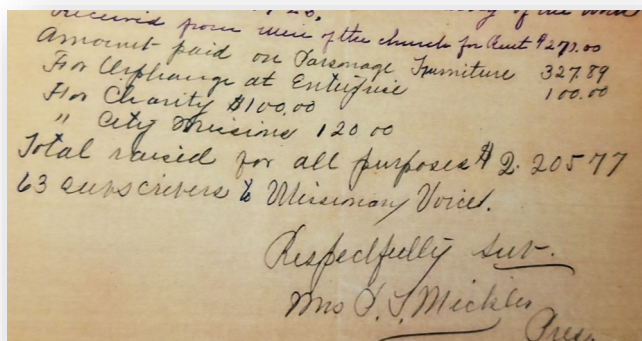 of the work
received from men of the church for Rent $270.00
Amount paid on Parsonage Furniture 327.89
For Orphanage at Enterprise 100.00
For Charity $100.00
" City Missions 120 00
Total raised for all purposes $2.205 77
63 subscribers to Missionary Voice.
Respectfully sub-
Mrs Mickler
Pres.